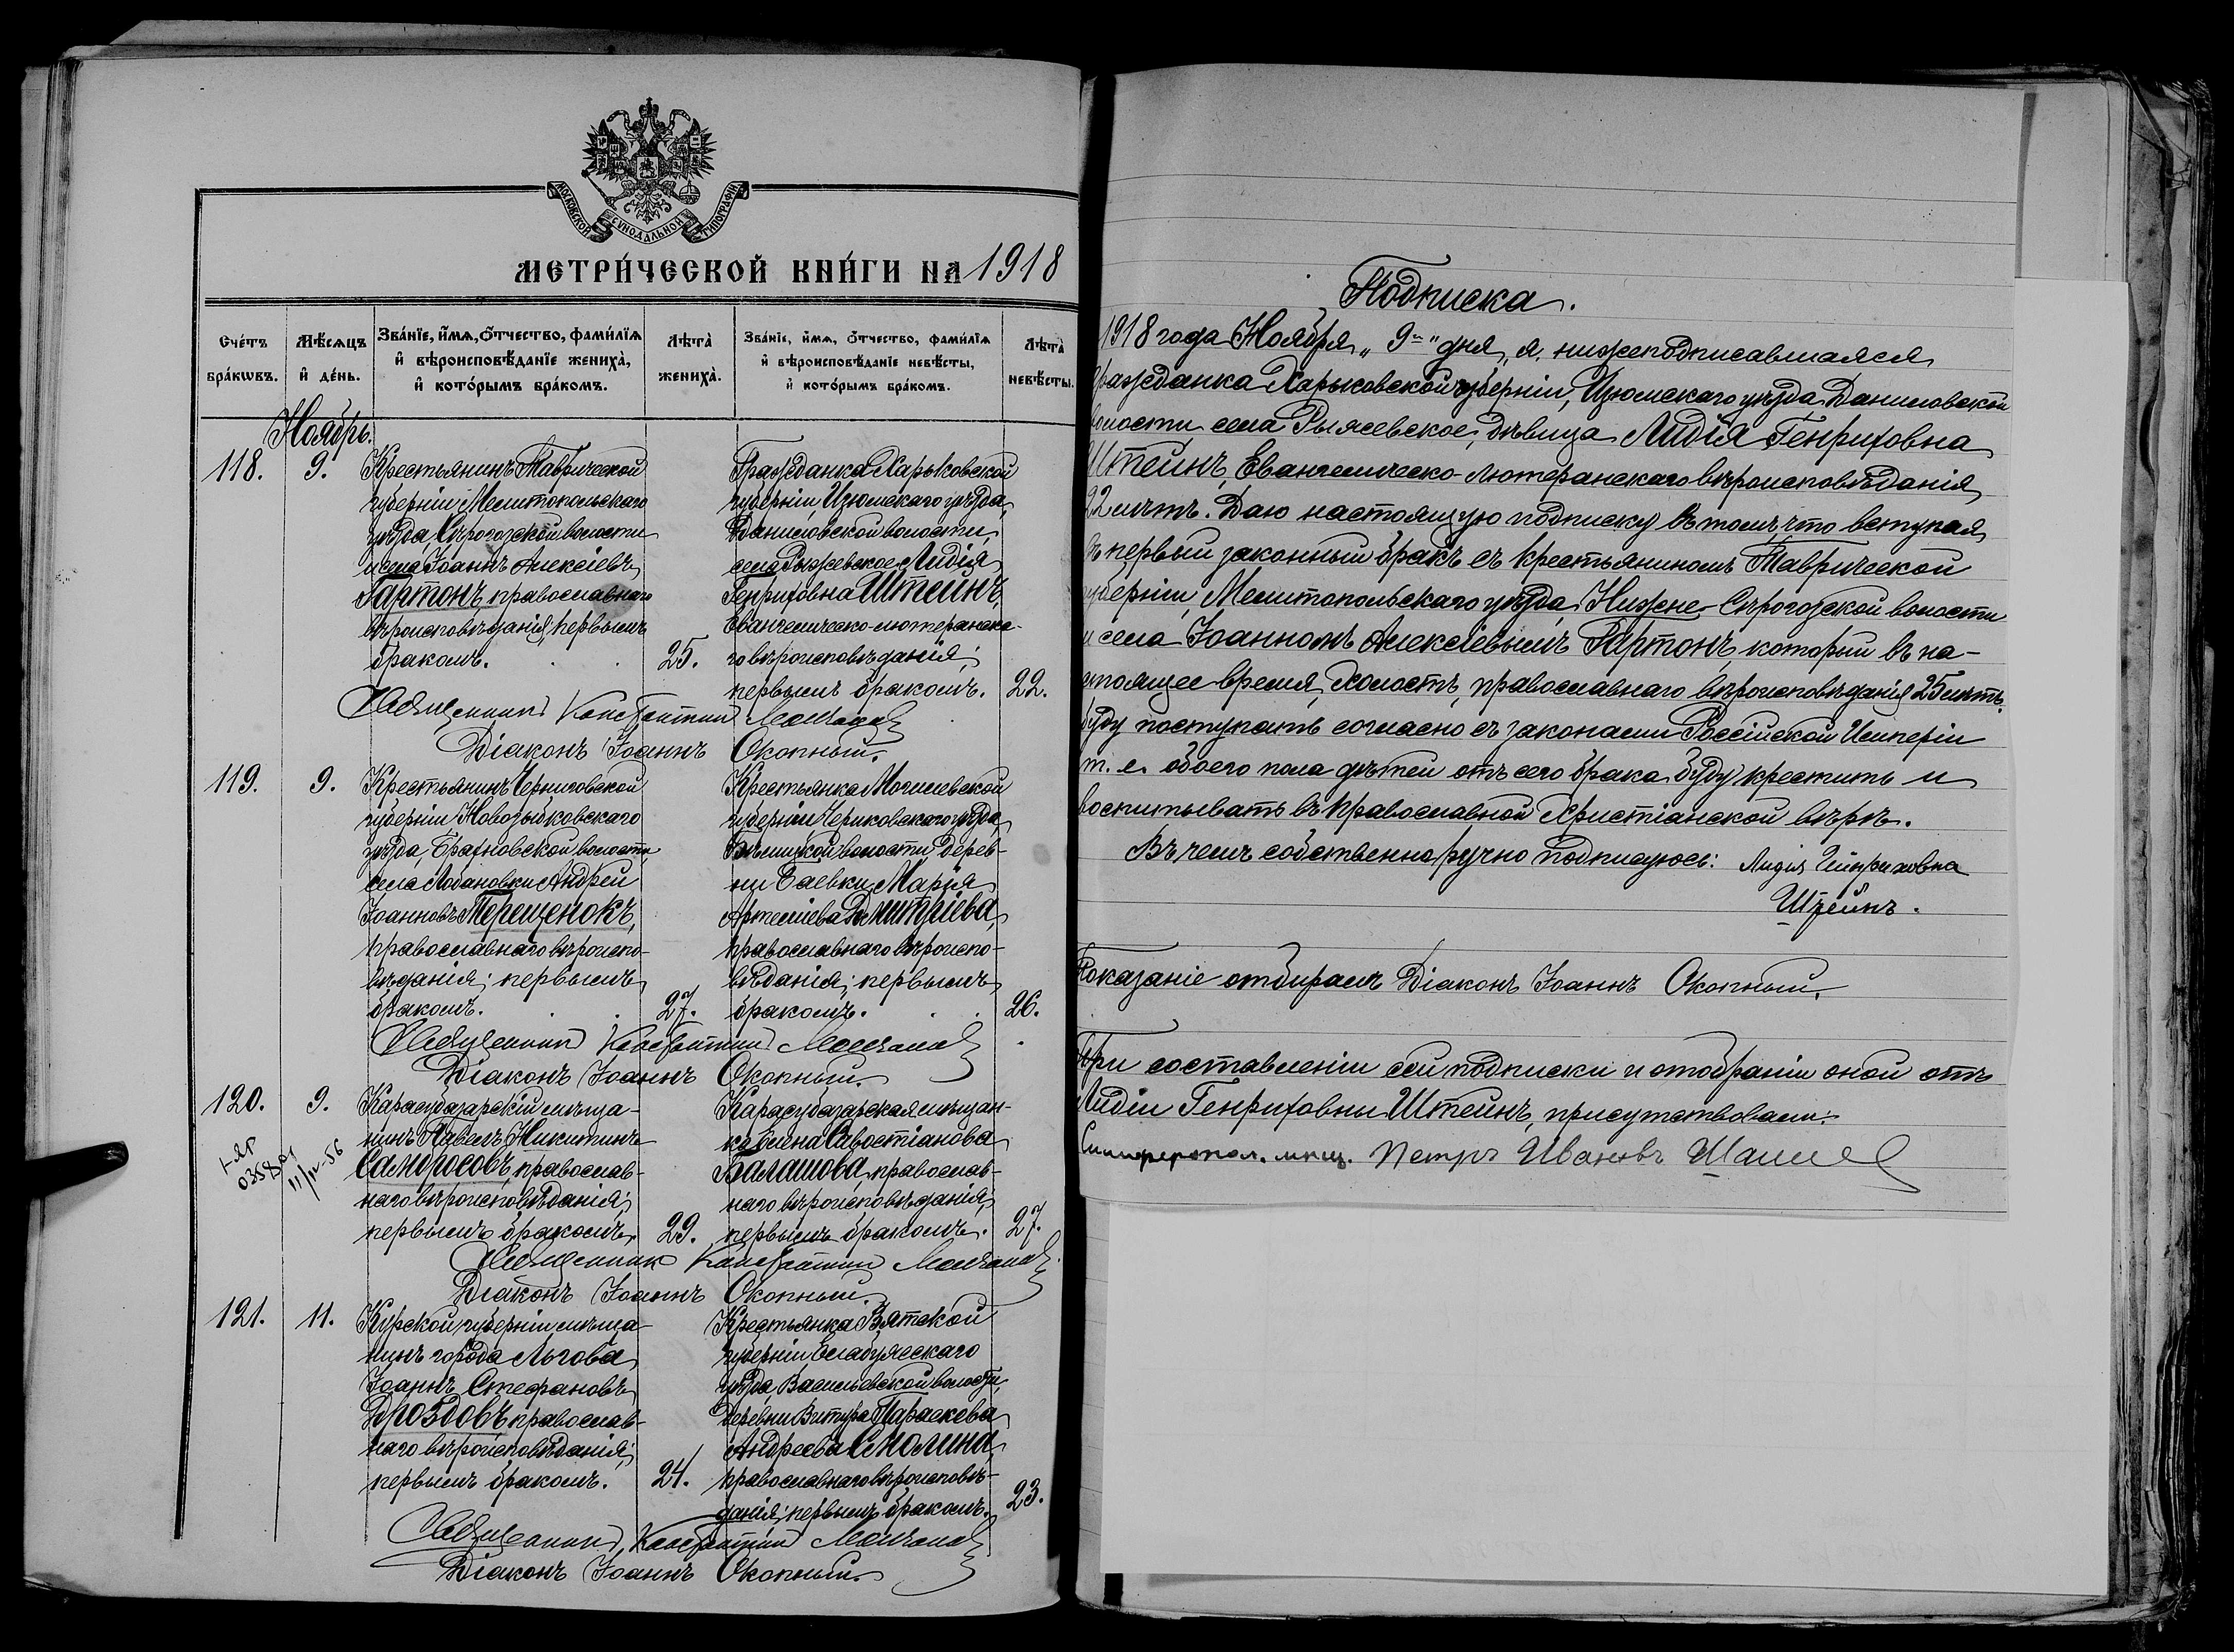 МОСКОВСКОЙ СѴНОДАЛЬНОЙ ТИПОГРАФІИ
МЕТРИ́ЧЕСКОЙ КНИ́ГИ НА 1918
Сче́тъ бра́кѡвъ.
Мѣ́сѧцъ и҆ де́нь.
Зва́нїе, и҆́мѧ, ѻ҆́тчество, фами́лїѧ и҆ вѣроисповѣ́данїе жениха̀, и҆ кото́рымъ бра́комъ.
Лѣта̀ жениха̀.
Зва́нїе, и҆́мѧ, ѻ҆́тчество, фами́лїѧ и҆ вѣроисповѣ́данїе невѣ́сты, и҆ кото́рымъ бра́комъ.
Лѣта̀ невѣ́сты.
Ноябрь.
118. 9.
Крестьянинъ Таврической
губерніи Мелитопольскаго
уѣзда, Сѣрогозской волости
и села Іоаннъ Алексіевъ
Гартонъ, православнаго
вѣроисповѣданія, первымъ
бракомъ. 25.
Гражданка Харьковской
губерніи, Изюмскаго уѣзда,
Даниловской волости,
села Рыжевское Лидія
Генриховна Штейнъ,
Евангелическо-лютеранска-
го вѣроисповѣданія;
первымъ бракомъ. 22.
Священникъ Константинъ
Діаконъ Іоаннъ Окопный.
119. 9.
Крестьянинъ Черниговской
губерніи Новозыбковскаго
уѣзда, Брахловской волости
села Лобановки Андрей
Іоанновъ Терещенокъ,
православнаго вѣроиспо-
вѣданія; первымъ
бракомъ. 27.
Крестьянка Могилевской
губерніи, Чериковскаго уѣзда,
волости, дерев-
ни Баевки Марія
Артемиева Дмитріева,
православнаго вѣроиспо-
вѣданія; первымъ
бракомъ. 26.
Священникъ Константинъ
Діаконъ Іоаннъ Окопный.
120. 9.
Карасубазарскій мѣща-
нинъ Павелъ Никитинъ
Самородовъ, православ-
наго вѣроисповѣданія;
первымъ бракомъ. 29.
Карасубазарская мѣщан-
ка Елена Савостіанова
Балашова, православ-
наго вѣроисповѣданія,
первымъ бракомъ. 27.
Священникъ Константинъ
Діаконъ Іоаннъ Окопный.
121. 11.
Курской губерніи мѣща-
нинъ города Льгова
Іоаннъ Стефановъ
Дроздовъ, православ-
наго вѣроисповѣданія;
первымъ бракомъ. 24.
Крестьянка Вятской
губерніи, Елабужскаго
уѣзда, Васильевской волости,
деревни Параскева
Андреева Смолина
православнаго вѣроисповѣ-
данія; первымъ бракомъ. 23.
Священникъ Константинъ
Діаконъ Іоаннъ Окопный.
Подписка.
1918 года Ноября „9-го" дня, я, нижеподписавшаяся
гражданка Харьковской губерніи, Изюмскаго уѣзда Даниловской
волости села Рыжевское, дѣвица Лидія Генриховна
Штейнъ, Евангелическо-лютеранскаго вѣроисповѣданія,
22 лѣтъ. Даю настоящую подписку въ томъ, что вступая
въ первый законный бракъ съ крестьяниномъ Таврической
губерніи, Мелитопольскаго уѣзда, Нижне-Сѣрогозской волости
и села Іоанномъ Алексіевымъ Гартонъ, который въ на-
стоящее время, холостъ, православнаго вѣроисповѣданія 25 лѣтъ,
буду поступать согласно съ законами Россійской Имперіи
т. е. обоего пола дѣтей отъ сего брака буду крестить и
воспитывать въ православной Христіанской вѣрѣ.
Въ чемъ собственноручно подписуюсь: Лидія Генриховна
Штейнъ.
Показаніе отбиралъ Діаконъ Іоаннъ Окопный.
При составленіи сей подписки и отобраніи оной отъ
Лидіи Генриховны Штейнъ, присутствовали:
Симферопол. мѣщ. Петръ Ивановъ